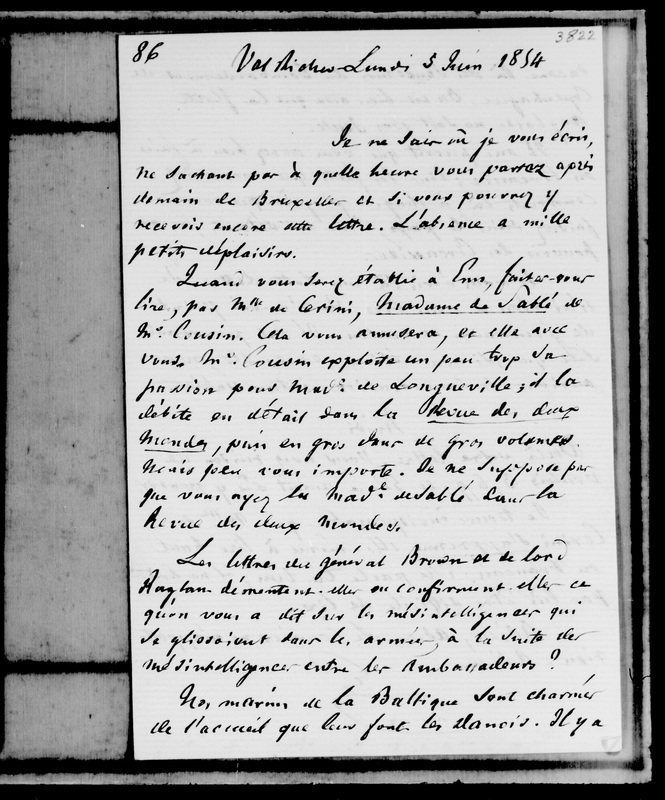 3822
86 Val Richer Lundi 5 Juin 1854
Je ne sais où je vous écris,
ne sachant pas à quelle heure vous partez après
demain de Bruxelles et si vous pourrez y
recevoir encore cette lettre. L'absence a mille
petits déplaisirs.
Quand vous serez établie à Ems, faites-vous
lire, par Mlle de Cerini, Madame de Sablé de
Mr. Cousin. Cela vous amusera, et elle avec
vous. Mr. Cousin exploite un peu trop sa
passion pour Made. de Longueville ; il la
débite en détail dans la Revue des deux
Mondes, puis en gros dans de gros volumes.
Mais peu vous importe. Je ne suppose pas
que vous ayez lu Made. de Sablé dans la
Revue des deux Mondes.
Les lettres du général Brown et de lord
Raglan démentent-elles ou confirment-elles ce
qu'on vous a dit sur les mésintelligences qui
se glissoient dans les armées, à la suite des
mésintelligences entre les Ambassadeurs ?
Nos marins de la Baltique sont charmés
de l'accueil que leur font les Danois. Il y a